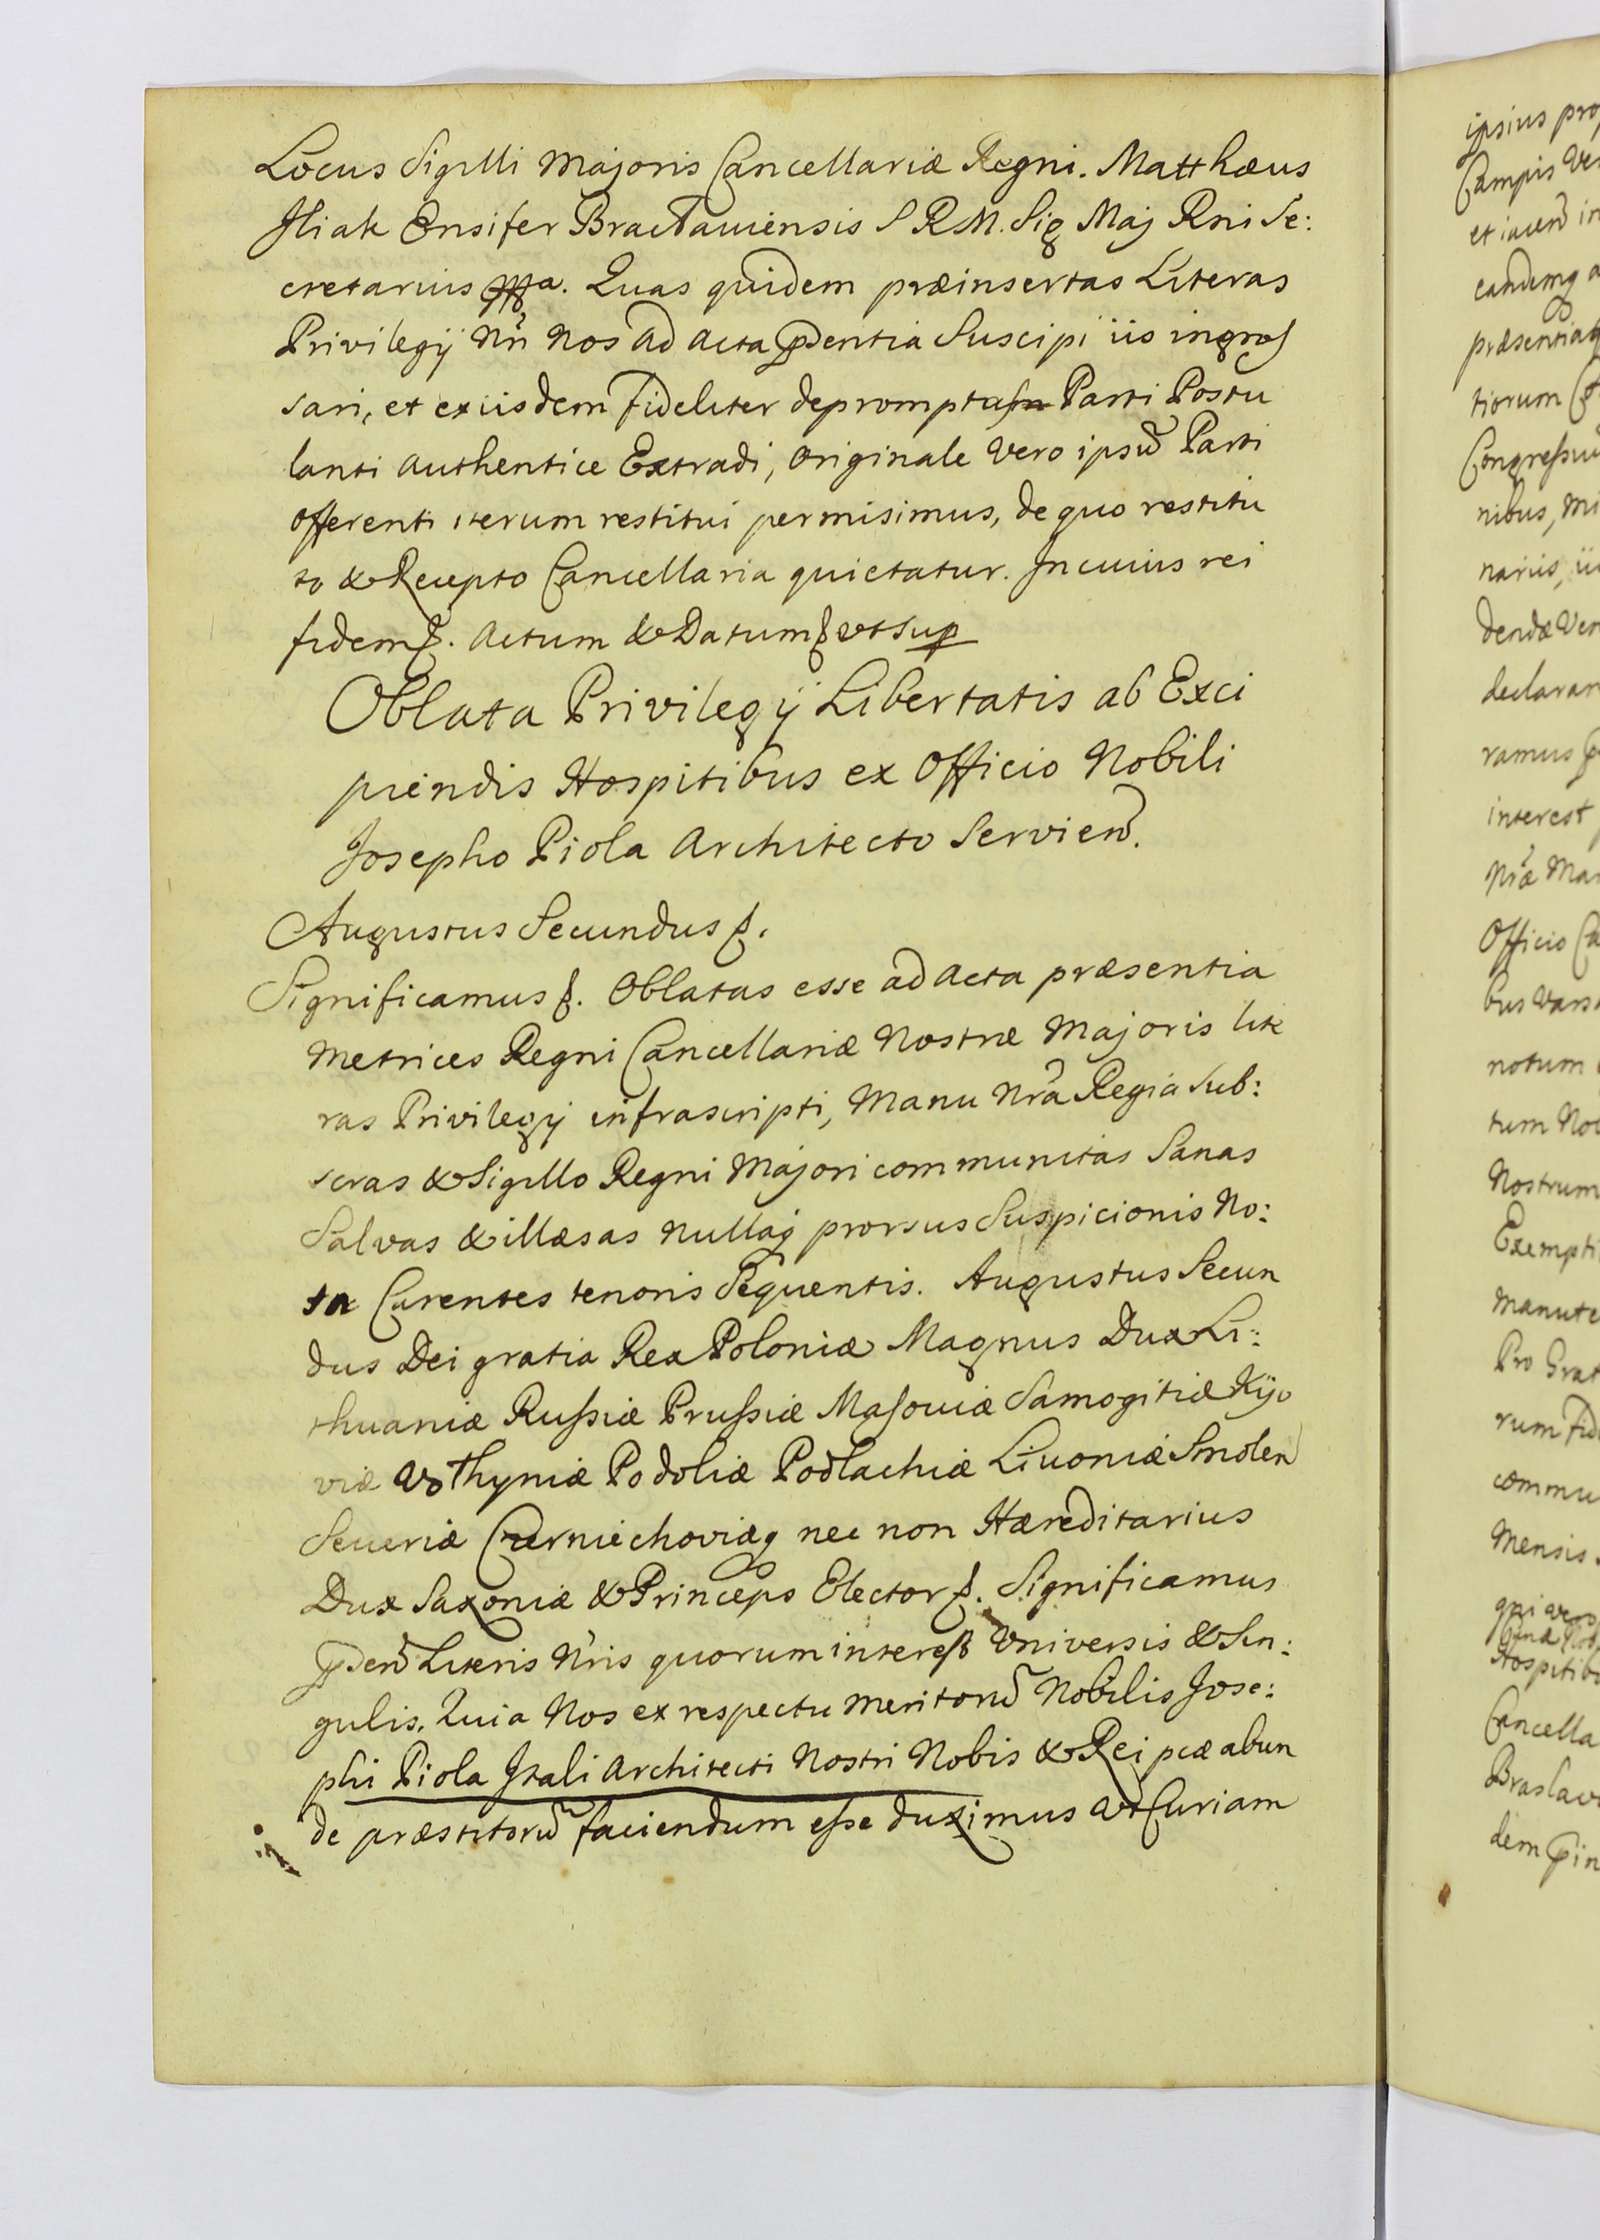 Locus Sigilli Majoris Cancellariæ Regni. Matthæus
Iliak Ensifer Braclaviensis S R M. Sig Maj Rni Se:
cretarius mpa. Quas quidem præinsertas Literas
Privilegij Nri Nos ad acta pdentia Suscipi iis ingros
sari, et exiisdem fideliter depromptas Parti Postu
lanti authentice Extradi, Originale Vero ipsũ Parti
offerenti iterum restitui permisimus, de quo restitu
to & Recepto Cancellaria quietatur. In cuius rei
fidem &. Actum & Datum & vt sup
Oblata Privilegij Libertatis ab Exci
piendis Hospitibus ex Officio Nobili
Josepho Piola Architecto Servien.
Augustus Secundus &.
Significamus &. Oblatas esse ad Acta præsentia
Metrices Regni Cancellariæ Nostræ Majoris lite
ras Privilegij infrascripti, Manu Nra Regia Sub:
scras & Sigillo Regni Majori communitas Sanas
Salvas & illæsas Nullaq prorsus Suspicionis No:
ta Carentes tenoris Sequentis. Augustus Secun
dus Dei gratia Rex Poloniæ Magnus Dux Li:
thuaniæ Russiæ Prussiæ Masoviæ Samogitiæ Kijo
viæ Volhyniæ Podoliæ Podlachiæ Livoniæ Smolen
Severiæ Czerniechoviæq nec non Hæreditarius
Dux Saxoniæ & Princeps Elector &. Significamus
pden Literis Nris quorum interest Vniversis & Sin:
gulis. Quia Nos ex respectu meritorũ Nobilis Jose:
phi Piola Itali Architecti Nostri Nobis & Rei pcæ abun
de præstitorũ faciendum esse duximus vt Curiam
ipsius pro
Campis Ve
et iacen in
eandemq a
præsentiaq
tiorum
Congressu
nibus, Mi
nariis, ii
dendæ Ven
declaran
ramus
interest
Nræ Ma
Officio Ca
bus Vars
notum
tum No
Nostrum
Exempti
manute
Pro Grat
rum Fid
commu
Mensis
Hospitib
Cancella
Braslav
dem